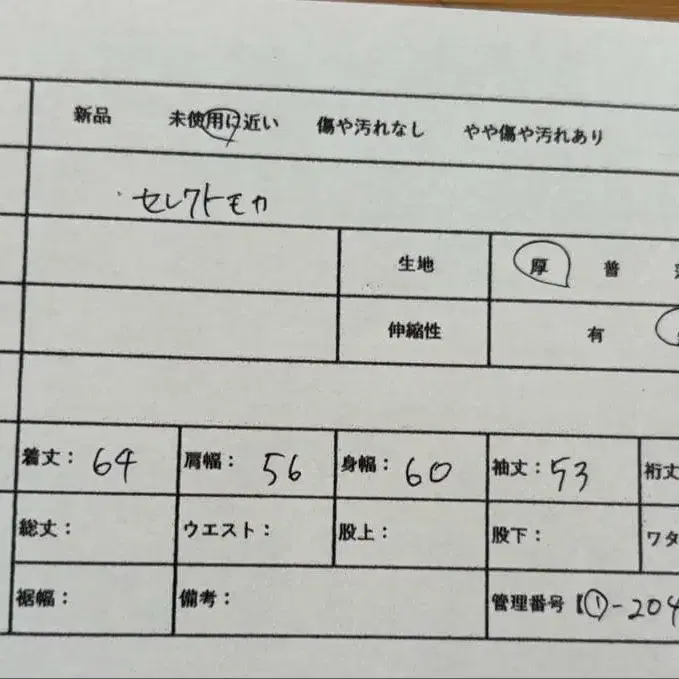 新品 未使用に近い 傷や汚れなし やや傷や汚れあり
セレクトモカ
生地 厚 普
伸縮性 有
着丈: 64 肩幅: 56 身幅: 60 袖丈: 53 裄丈
総丈: ウエスト: 股上: 股下: ワタ
裾幅: 備考: 管理番号【①-204